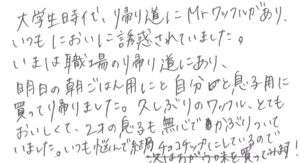 大学生時代、帰り道にMr.ワッフルがあり、
いつもにおいに誘惑されていました。
いまは職場の帰り道にあり、
明日の朝ごはん用にと自分と息子用に
買って帰りました。久しぶりのワッフル、とても
おいしくて、2才の息子も無心でかぶりついて
いました。いつも悩んで結局チョコチップにしているので
次はちがう味を買ってみます!